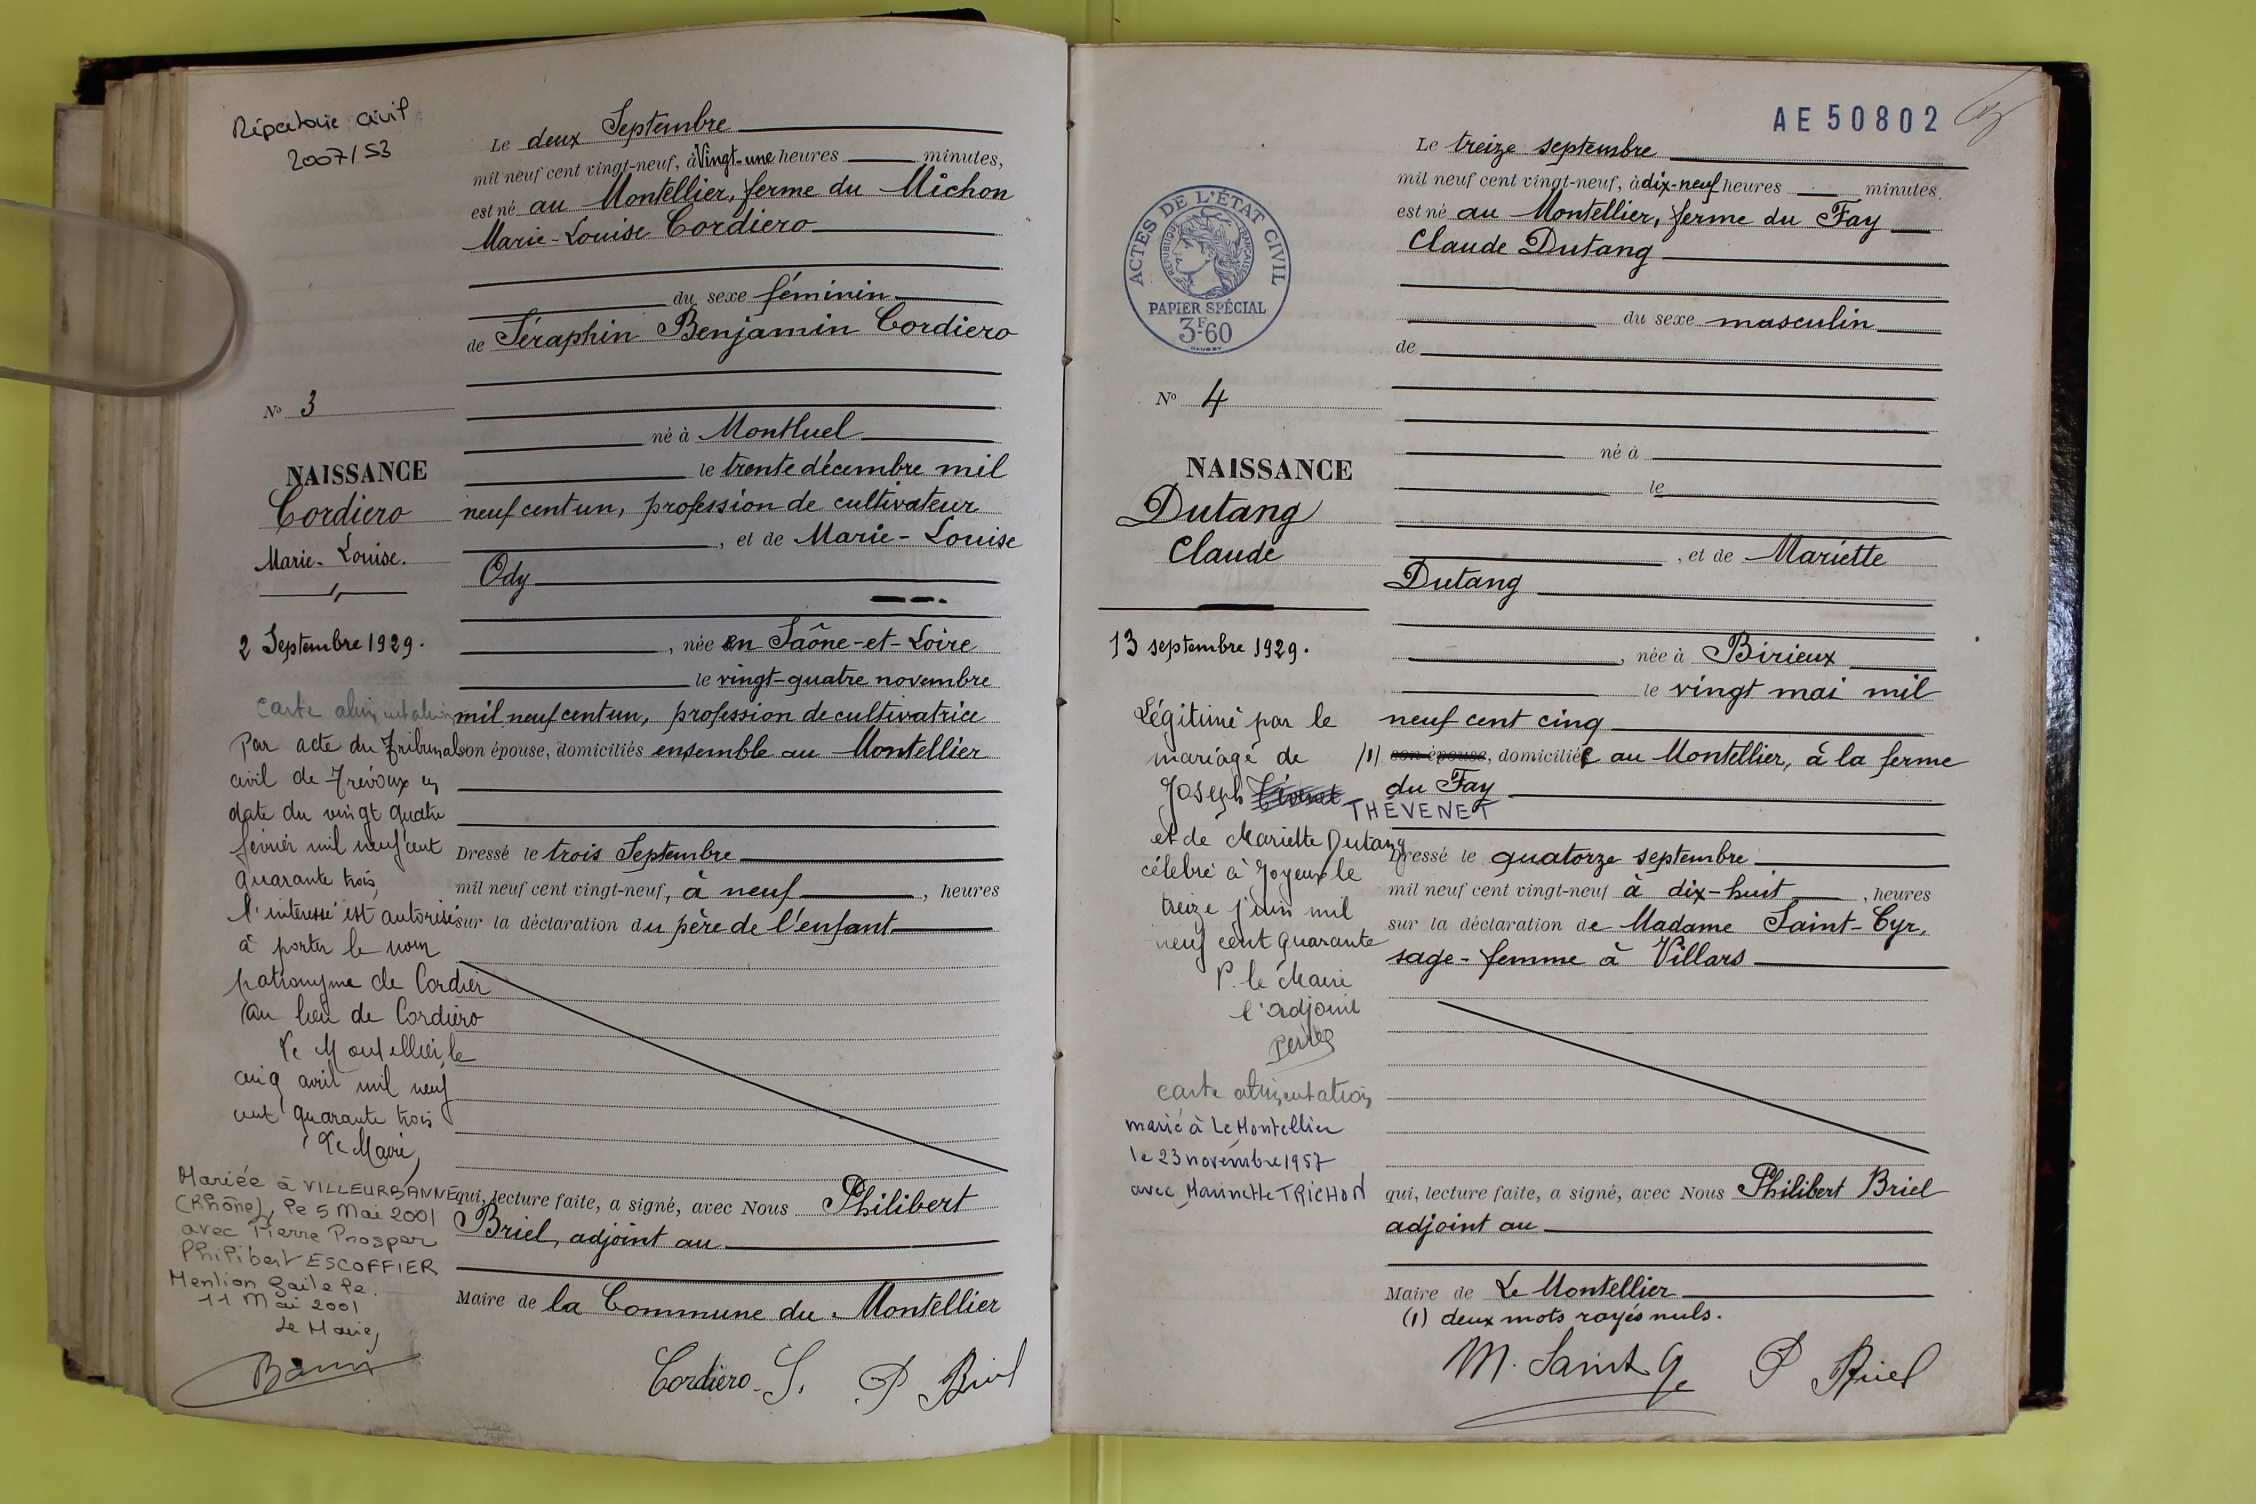 Répertoire civil
2007/53
Le deux Septembre
mil neuf cent vingt-neuf, à Vingt-une heures minutes,
est né au Montellier, ferme du Michon
Marie-Louise Cordiero
du sexe féminin
de Séraphin Benjamin Cordiero
né à Montluel
le trente décembre mil
neuf cent un, profession de cultivateur
, et de Marie-Louise
Ody
, née en Saône-et-Loire
le vingt-quatre novembre
mil neuf cent un, profession de cultivatrice
son épouse, domiciliés ensemble au Montellier
Dressé le trois Septembre
mil neuf cent vingt-neuf, à neuf , heures
sur la déclaration du père de l'enfant
qui, lecture faite, a signé, avec Nous Philibert
Briel, adjoint au
Maire de la Commune du Montellier
Cordiero S. P Briel
No 3
NAISSANCE
Cordiero
Marie-Louise.
2 Septembre 1929.
carte alimentation
Par acte du Tribunal
civil de Trévoux en
date du vingt quatre
février mil neuf cent
quarante trois,
l'intéressé est autorisé
à porter le nom
patronyme de Cordier
au lieu de Cordiero
Le Montellier, le
cinq avril mil neuf
cent quarante trois
Le Maire,
Mariée à VILLEURBANNE
(Rhône), le 5 Mai 2001
avec Pierre Prosper
Philibert ESCOFFIER
Mention faite le
11 Mai 2001
Le Maire,
AE 50802
ACTES DE L'ÉTAT CIVIL
RÉPUBLIQUE FRANÇAISE
PAPIER SPÉCIAL
3F60
No 4
NAISSANCE
Dutang
Claude
13 septembre 1929.
Légitimé par le
mariage de
Joseph THÉVENET
et de Mariette Dutang
célébré à Joyeux le
treize juin mil
neuf cent quarante
P. le Maire
l'adjoint
carte alimentation
marié à Le Montellier
le 23 novembre 1957
avec Marinette TRICHON
Le treize septembre
mil neuf cent vingt-neuf, à dix-neuf heures minutes.
est né au Montellier, ferme du Fay
Claude Dutang
du sexe masculin
de
né à
le
, et de Mariette
Dutang
, née à Birieux
le vingt mai mil
neuf cent cinq
(1) son épouse, domiciliée au Montellier, à la ferme
du Fay
Dressé le quatorze septembre
mil neuf cent vingt-neuf à dix-huit , heures
sur la déclaration de Madame Saint-Cyr,
sage-femme à Villars
qui, lecture faite, a signé, avec Nous Philibert Briel
adjoint au
Maire de Le Montellier
(1) deux mots rayés nuls.
M. Saint Cyr P Briel